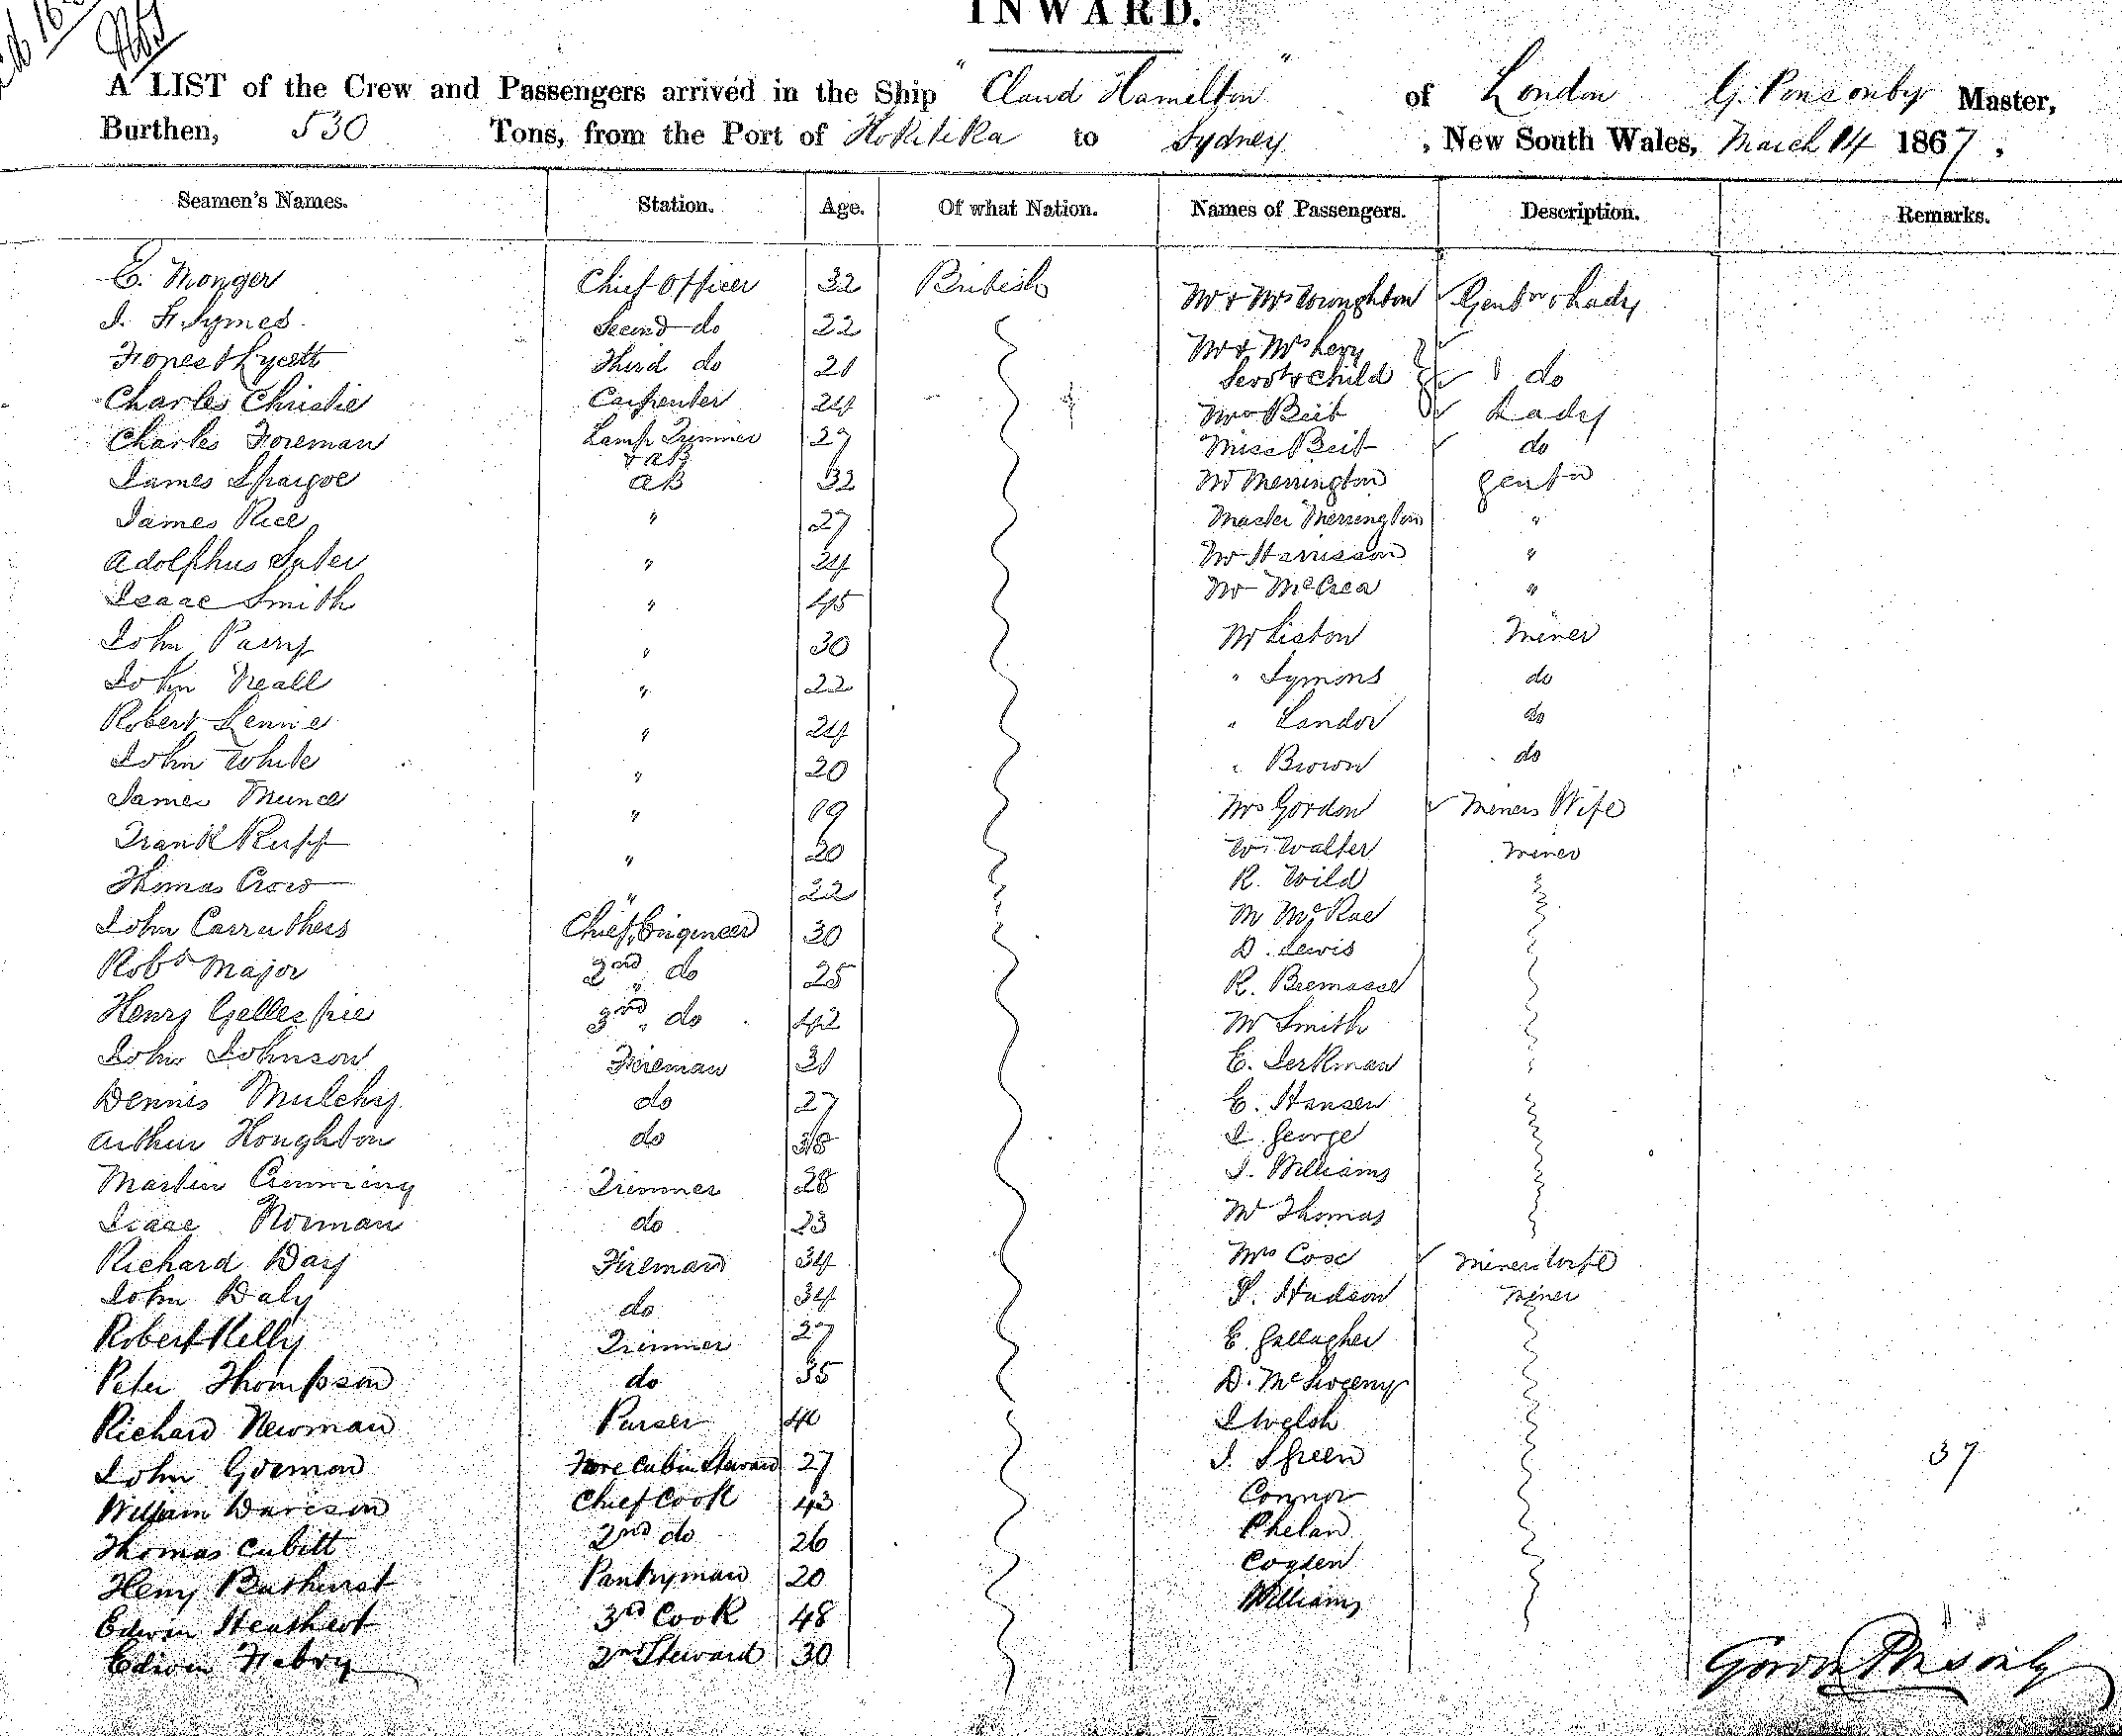 INWARD.
A LIST of the Crew and Passengers arrived in the Ship "Claud Hamelton" of London G. Ponsonby Master,
Burthen, 530 Tons, from the Port of Hokitika to Sydney, New South Wales, March 14 1867,
Seamen's Names. Station. Age. Of what Nation. Names of Passengers. Description. Remarks.
E. Monger Chief Officer 32 British Mr & Mrs Wroughton Gentn & Lady
J. F. Symes Second do 22 Mr & Mrs Levy
Forrest Lycett Third do 21 Servt & Child do
Charles Christie Carpenter 24 Mrs Beit Lady
Charles Foreman Lamp Trimmer & AB 27 Miss Beit do
James Spargoe AB 32 Mr Merrington Gentn
James Rice " 27 Master Merrington "
Adolphus Suter " 24 Mr Harrisson "
Isaac Smith " 45 Mr McCrea "
John Parry " 30 Mr Liston Miner
John Neall " 22 " Symons do
Robert Lennie " 24 " Landor do
John White " 20 " Brown do
James Munce " 19 Mrs Gordon Miners Wife
Frank Rupp " 20 W. Walter Miner
Thomas Crow " 22 R. Wild
John Carruthers Chief Engineer 30 M McRae
D. Lewis
Robt Major 2nd " do 25 R.
Henry Gellespie 3rd " do 42 Mr Smith
John Johnson Fireman 31 E. Jerkman
Dennis Mulchy do 27 C. Hansen
Arthur Houghton do 38 J. George
Martin Cumming Trimmer 28 J. Williams
Isaac Norman do 23 Mr Thomas
Richard Day Fireman 34 Mrs Cox Miners Wife
John Daly do 34 S. Hudson Miner
Robert Kelly Trimmer 27 E. Gallagher
Peter Thompson do 35 D. McSweeny
Richard Newman Purser 40 J Welsh
John Gorman Fore Cabin Steward 27 J. Speen 37
William Davison Chief Cook 43 Connor
Thomas Cubitt 2nd do 26 Phelan
Henry Bathurst Pantryman 20 Cogden
Edwin Heathert 3rd Cook 48 Williams
Edwin Fabry 2nd Steward 30
Gordon Ponsonby